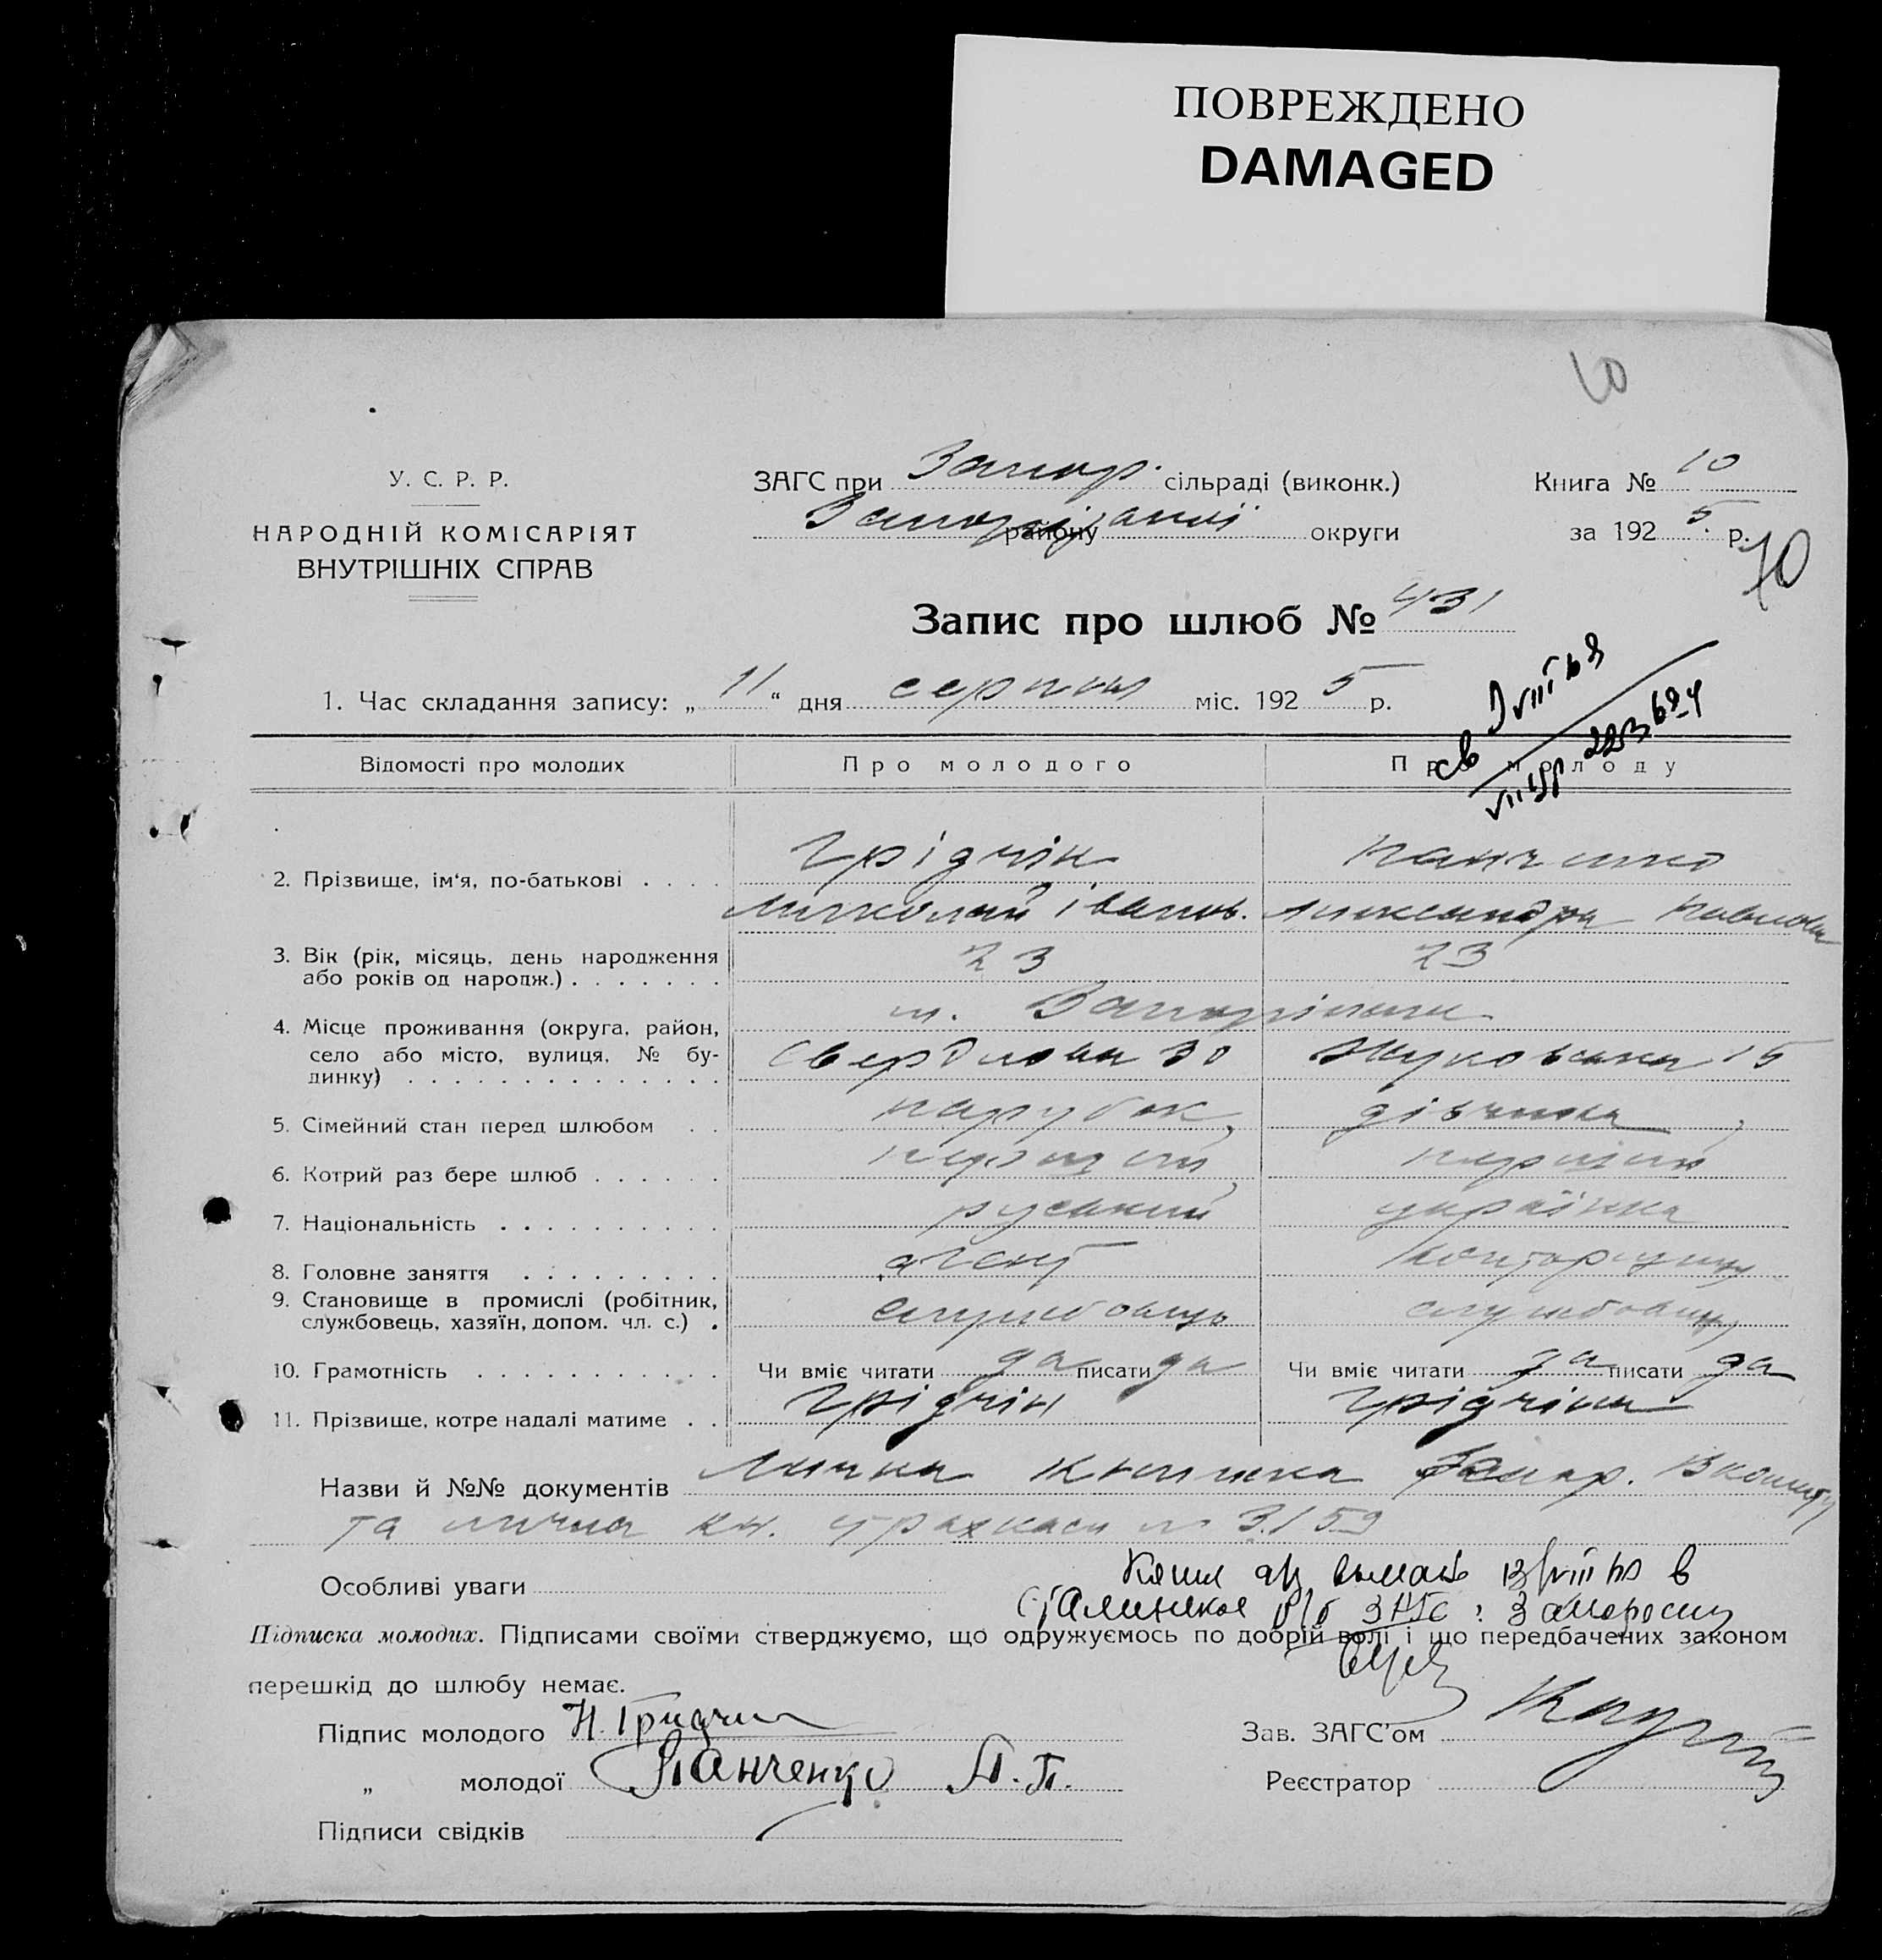 ПОВРЕЖДЕНО
DAMAGED
10
У. С. Р. Р.
НАРОДНІЙ КОМІСАРІЯТ
ВНУТРІШНІХ СПРАВ
ЗАГС при Запор. сільраді (виконк.)
Запорізької району округи
Книга № 10
за 1925 р.
70
Запис про шлюб № 431
1. Час складання запису: „11“ дня серпня міс. 1925 р.
св
Відомості про молодих Про молодого Про молоду
2. Прізвище, ім'я, по-батькові . . . . Грідчін Панченко
Миколай Іванов. Александра Павловн
3. Вік (рік, місяць, день народження або років од народж.) . . . . . . . 23 23
4. Місце проживання (округа, район, село або місто, вулиця, № будинку) . . . . . . . . . . . . . . м. Запоріжжя
Свердлова 30 Жуковська 15
5. Сімейний стан перед шлюбом . . парубок, дівчина,
6. Котрий раз бере шлюб . . . . . . перший, перший
7. Національність . . . . . . . . . . руський українка
8. Головне заняття . . . . . . . . . агент конторщиця
9. Становище в промислі (робітник, службовець, хазяїн, допом. чл. с.) . службовець службовець
10. Грамотність . . . . . . . . . . . Чи вміє читати да писати да Чи вміє читати да писати да
11. Прізвище, котре надалі матиме . . Грідчін Грідчіна
Назви й №№ документів Лична книжка Запор. Вкомпту
та лична кн. страхкаси № 3159
Особливі уваги
в
Сталинское ЗАГС г. Запорожья
Підписка молодих. Підписами своїми стверджуємо, що одружуємось по добрій волі і що передбачених законом
перешкід до шлюбу немає.
Підпис молодого Н. Гридчин
Зав. ЗАГС'ом
„ молодої Панченко А. П.
Реєстратор
Підписи свідків